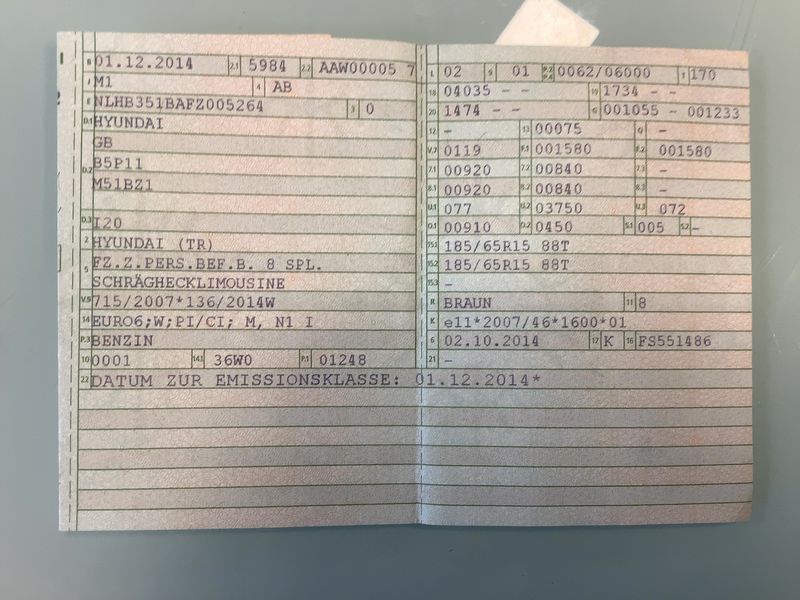 B 01.12.2014 2.1 5984 2.2 AAW00005 7
J M1 4 AB
E NLHB351BAFZ005264 3 0
D.1 HYUNDAI
GB
D.2 B5P11
M51BZ1
D.3 I20
2 HYUNDAI (TR)
5 FZ.Z.PERS.BEF.B. 8 SPL.
SCHRÄGHECKLIMOUSINE
V.9 715/2007*136/2014W
14 EURO6;W;PI/CI; M, N1 I
P.3 BENZIN
10 0001 14.1 36W0 P.1 01248
22 DATUM ZUR EMISSIONSKLASSE: 01.12.2014*
L 02 9 01 P.2 P.4 0062/06000 T 170
18 04035 - - 19 1734 - -
20 1474 - - G 001055 - 001233
12 - 13 00075 Q -
V.7 0119 F.1 001580 F.2 001580
7.1 00920 7.2 00840 7.3 -
8.1 00920 8.2 00840 8.3 -
U.1 077 U.2 03750 U.3 072
O.1 00910 O.2 0450 S.1 005 S.2 -
15.1 185/65R15 88T
15.2 185/65R15 88T
15.3 -
R BRAUN 11 8
K e11*2007/46*1600*01
6 02.10.2014 17 K 16 FS551486
21 -